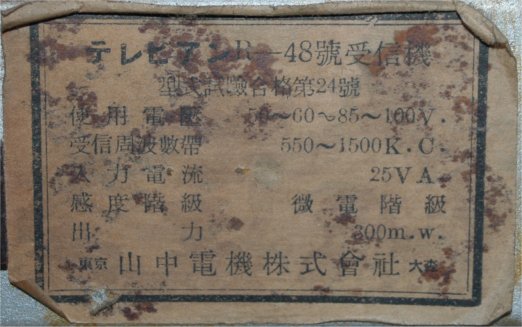 テレビアン R-48號受信機
型式試驗合格第24號
使用電壓 50～60～85～100V.
受信周波數帶 550～1500K.C.
入力電流 25VA.
感度階級 微電階級
出力 300m.w.
東京 山中電機株式會社 大森